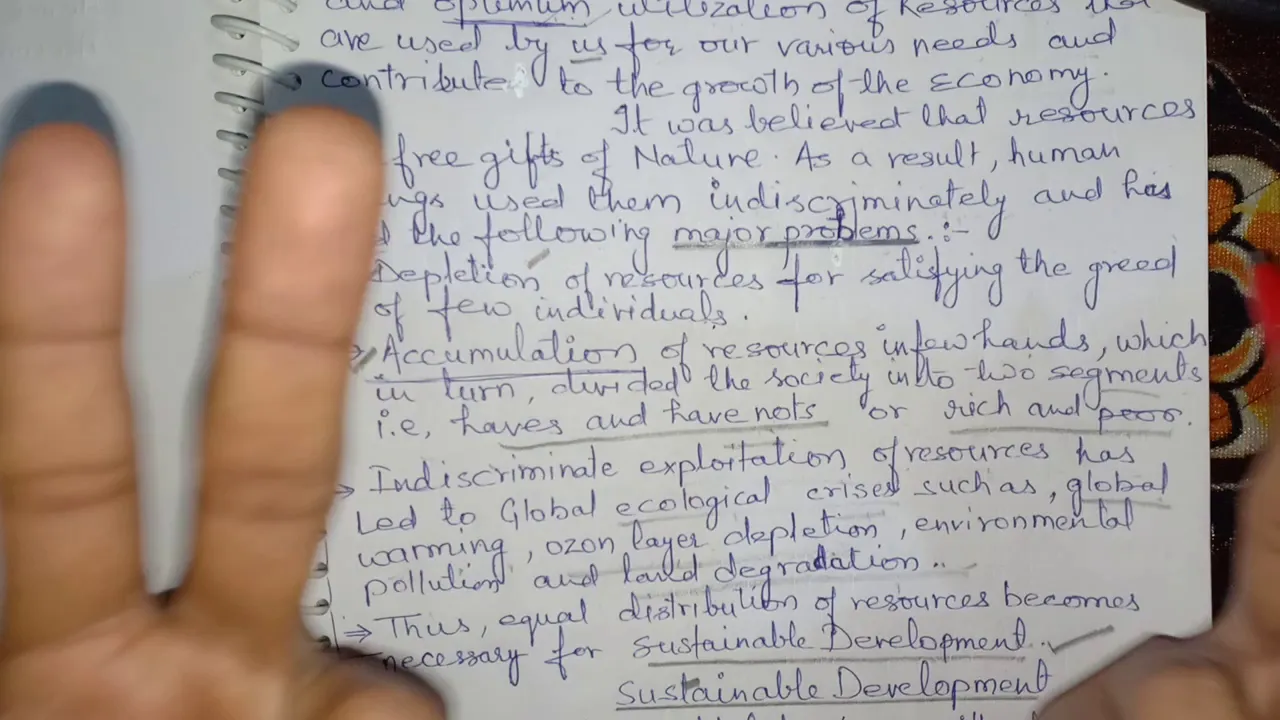 and optimum utilization of Resources that
are used by us for our various needs and
contribute to the growth of the Economy.
It was believed that resources
free gifts of Nature. As a result, human
ngs used them indiscriminately and has
the following major problems :-
Depletion of resources for satisfying the greed
of few individuals.
Accumulation of resources in few hands, which
in turn, divided the society into two segments
i.e, haves and have nots or rich and poor.
⇒ Indiscriminate exploitation of resources has
Led to Global ecological crises such as, global
warming, ozon layer depletion, environmental
pollution and land degradation..
⇒ Thus, equal distribution of resources becomes
necessary for Sustainable Development..
Sustainable Development